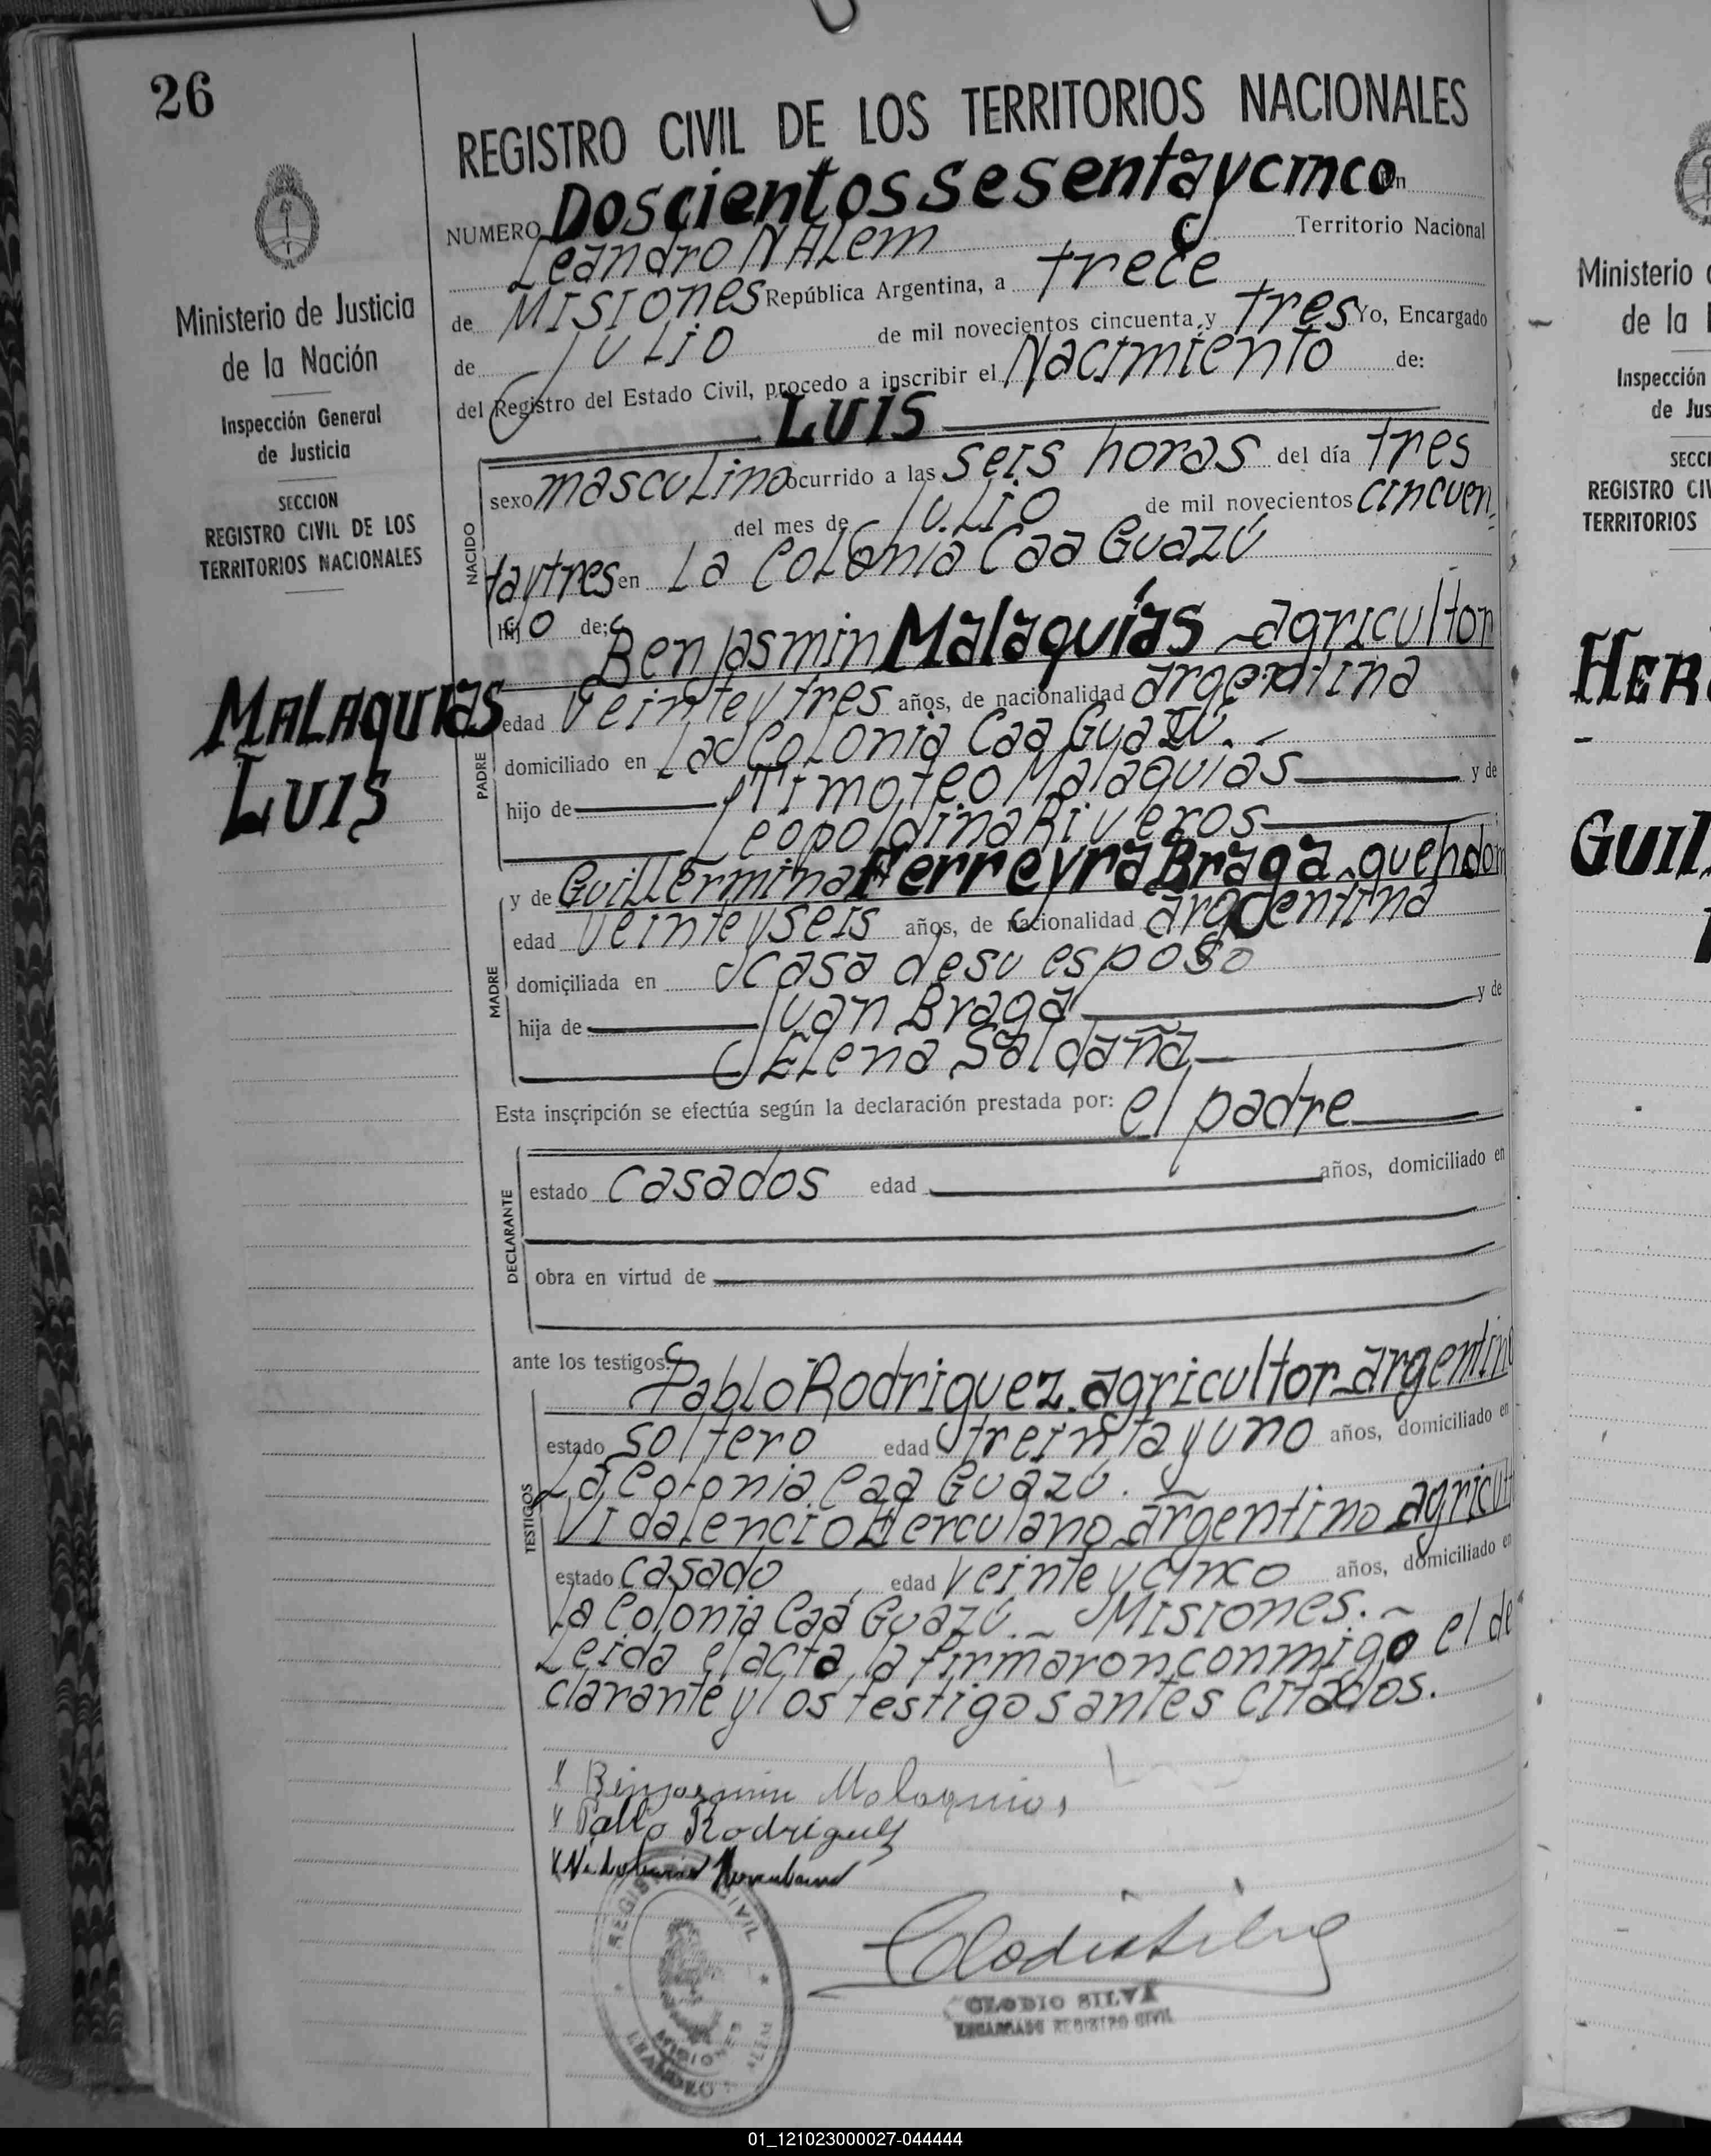 26
REGISTRO CIVIL DE LOS TERRITORIOS NACIONALES
NUMERO Doscientos sesenta y cinco En
Leandro N Alem Territorio Nacional
de Misiones República Argentina, a trece
de Julio de mil novecientos cincuenta y tres Yo, Encargado
del Registro del Estado Civil, procedo a inscribir el Nacimiento de:
LUIS
Ministerio de Justicia
de la Nación
Inspección General
de Justicia
SECCION
REGISTRO CIVIL DE LOS
TERRITORIOS NACIONALES
MALAQUIAS
LUIS
NACIDO
sexo masculino ocurrido a las seis horas del día tres
del mes de Julio de mil novecientos cincuen
ta y tres en La Colonia Caa Guazú
hijo de:
Benjasmin Malaquías agricultor
PADRE
edad Veinte y tres años, de nacionalidad argentina
domiciliado en La Colonia Caa Guazú.
hijo de Timoteo Malaquias y de
Leopoldina Riveros
MADRE
y de Guillermina Ferreyra Braga quehdom
edad veinte y seis años, de nacionalidad argentina
domiciliada en casa de su esposo
hija de Juan Braga y de
Elena Saldaña
Esta inscripción se efectúa según la declaración prestada por: el padre
DECLARANTE
estado casados edad años, domiciliado en
obra en virtud de
ante los testigos:
TESTIGOS
Pablo Rodriguez agricultor argentino
estado soltero edad treinta y uno años, domiciliado en
La Colonia Caa Guazú.
Vidalencio Herculano argentino agricult
estado casado edad veinte y cinco años, domiciliado en
La Colonia Caá Guazú. Misiones.
Leida el acta, la firmaron conmigo el de
clarante y los testigos antes citados.
Benjasmin Malaquias
Pablo Rodriguez
REGISTRO CIVIL
MISIONES
LEANDRO N. ALEM
Clodio Silva
CLODIO SILVA
ENCARGADO REGISTRO CIVIL
Ministerio
de la
Inspección
de Jus
SECCI
REGISTRO CIV
TERRITORIOS
HER
GUIL
01_121023000027-044444